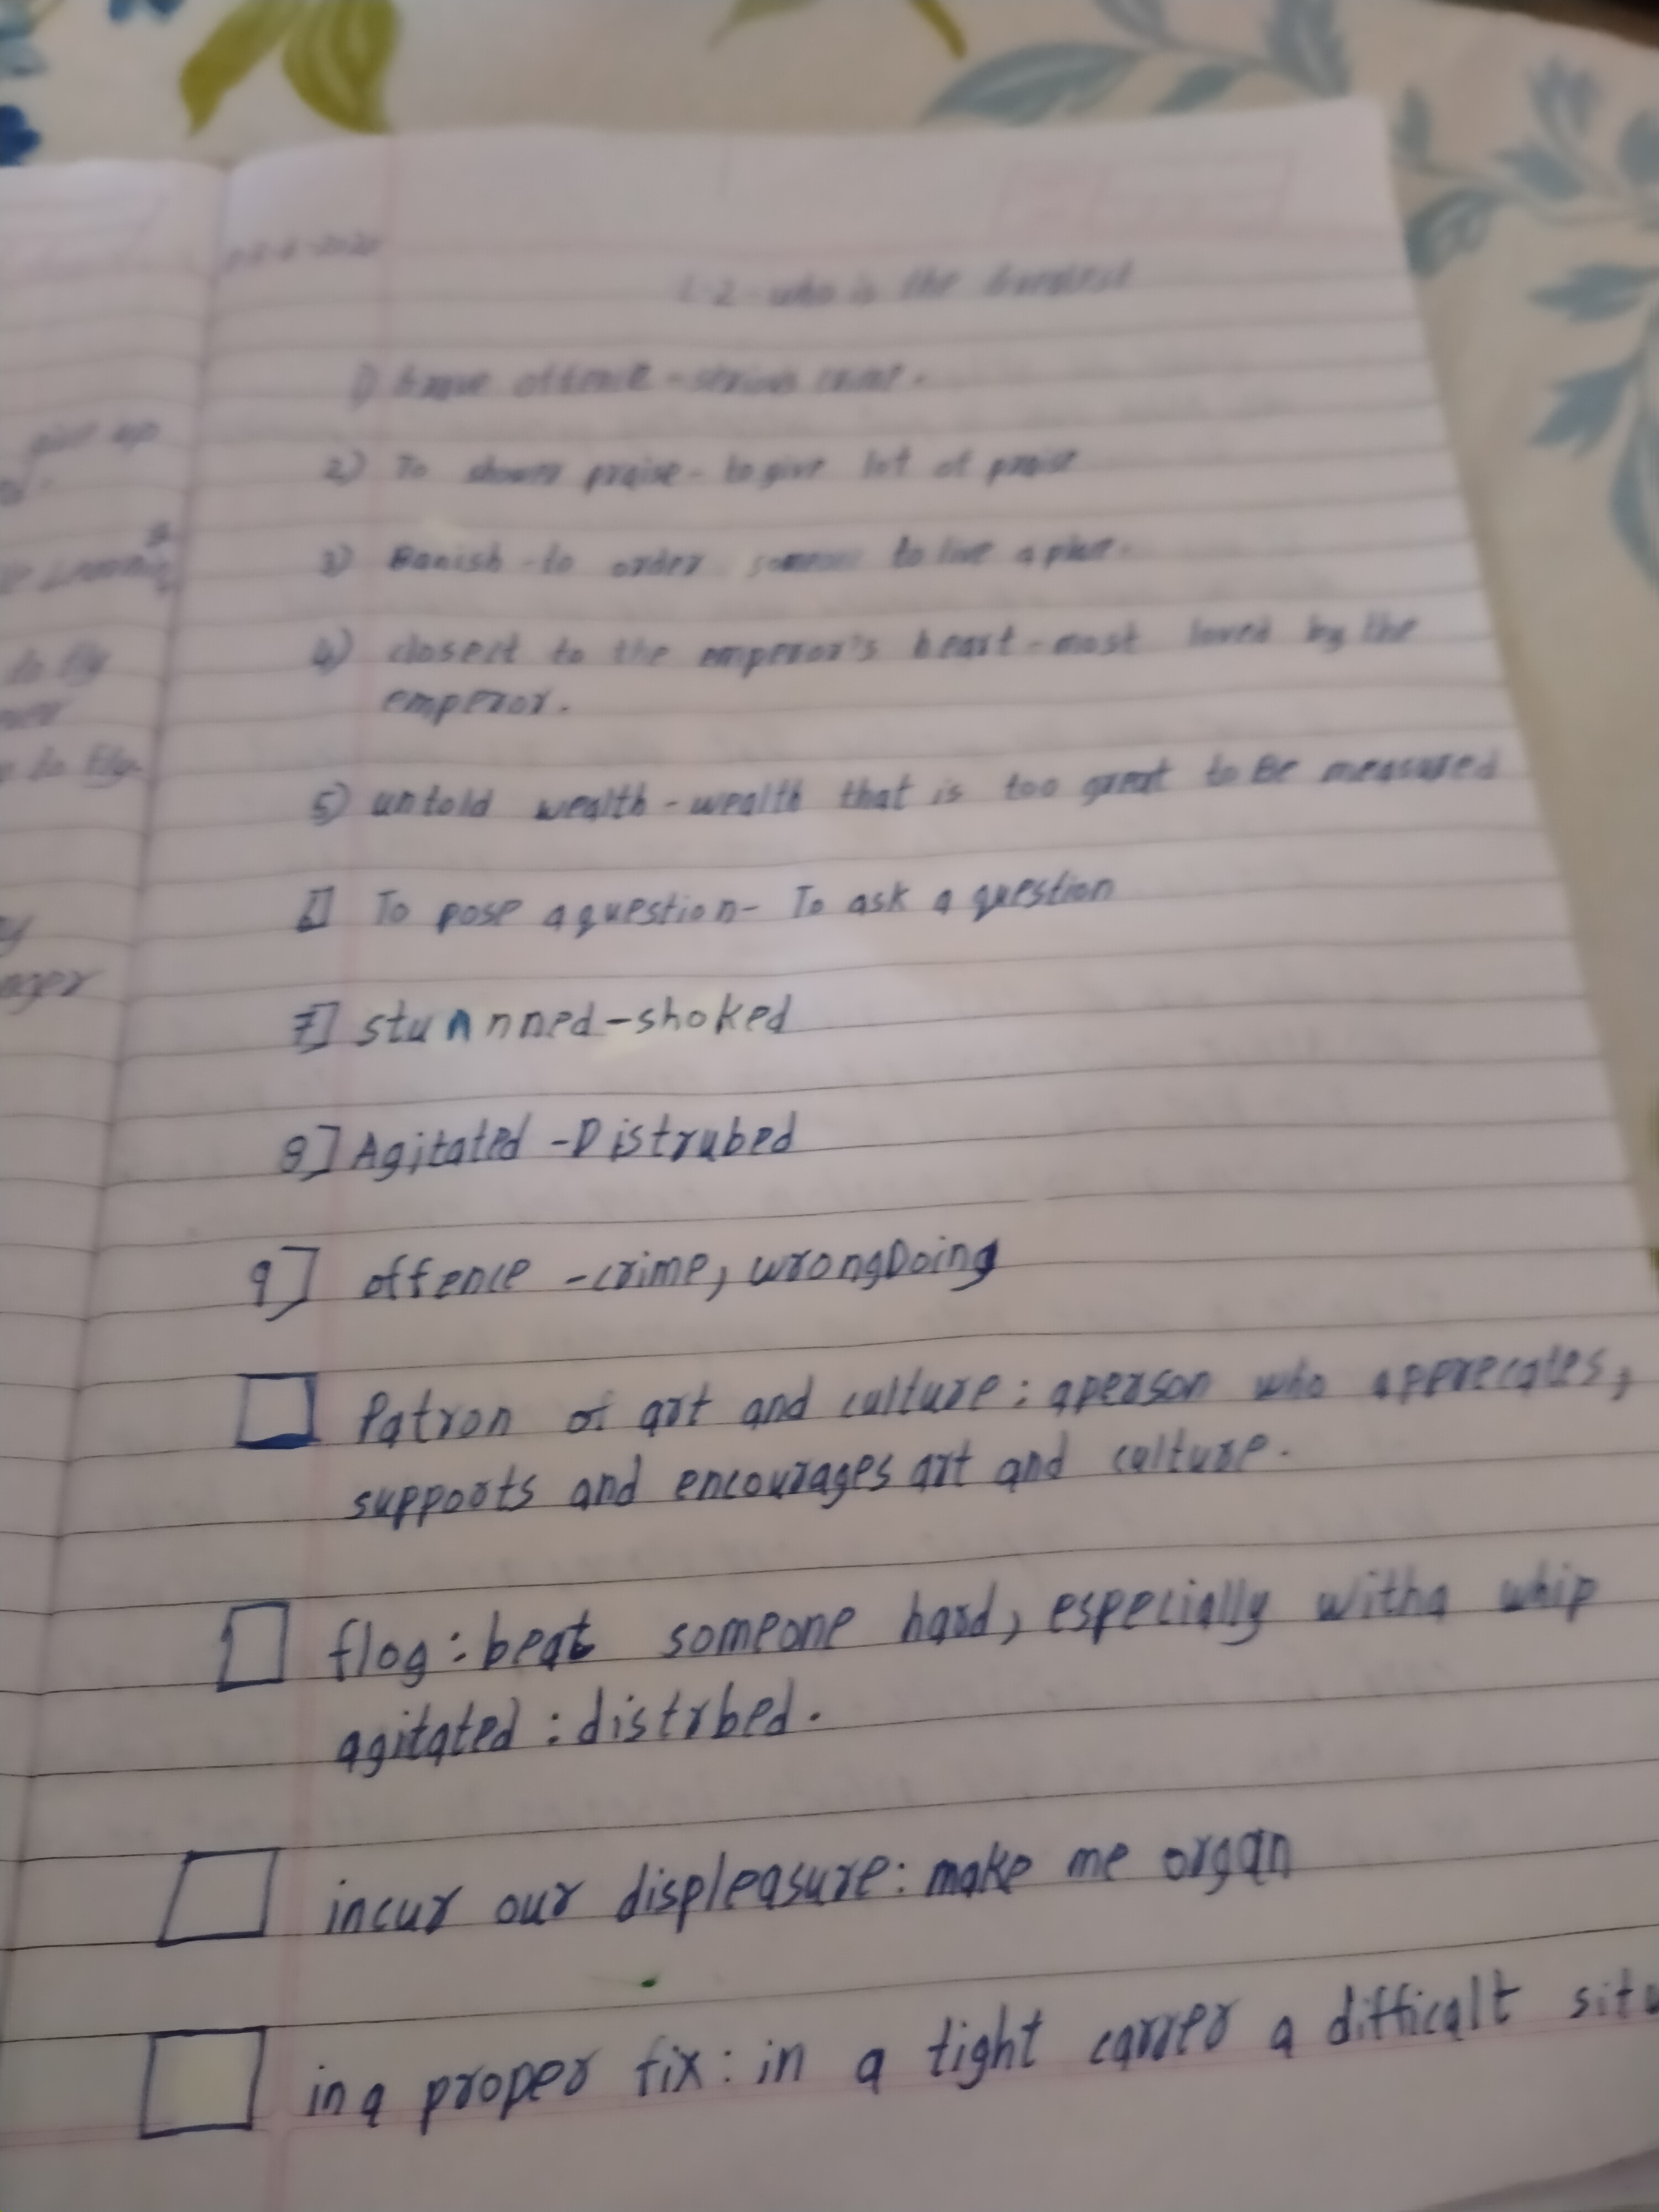 give up
to fly
to fly.
nger
L-2 - who is the Greatest
1) Grave offence - serious crime.
2) To shower praise - to give lot of praise
3) Banish - to order someone to live a place.
4) closest to the emperor's heart - most loved by the
emperor.
5) untold wealth - wealth that is too great to Be measured
6] To pose a question - To ask a question
7] stunnned - shoked
8] Agitated - Distrubed
9] offence - crime, wrongDoing
Patron of art and culture : aperson who apprecates,
supports and encourages art and culture.
flog : beat someone hard, especially witha whip
agitated : distrbed.
incur our displeasure : make me organ
in a proper fix : in a tight carrer a difficalt situ